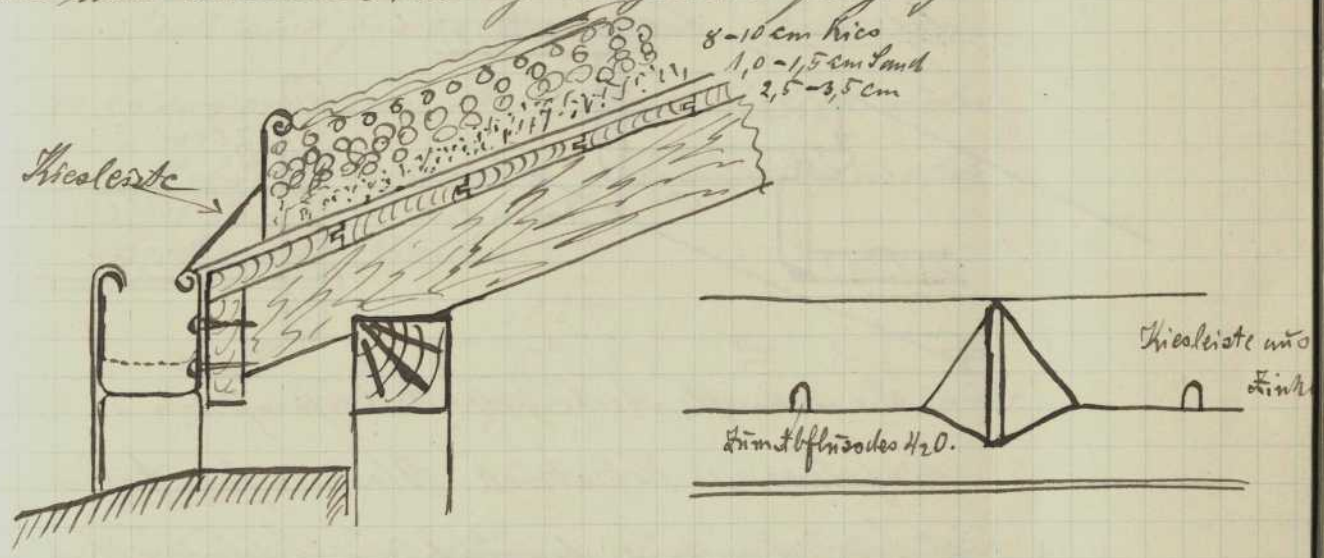 8-10 cm Kies
1,0-1,5 cm Sand
2,5-3,5 cm
Kiesleiste
Kiesleiste aus
Zink
Zum Abfluss des H2O.